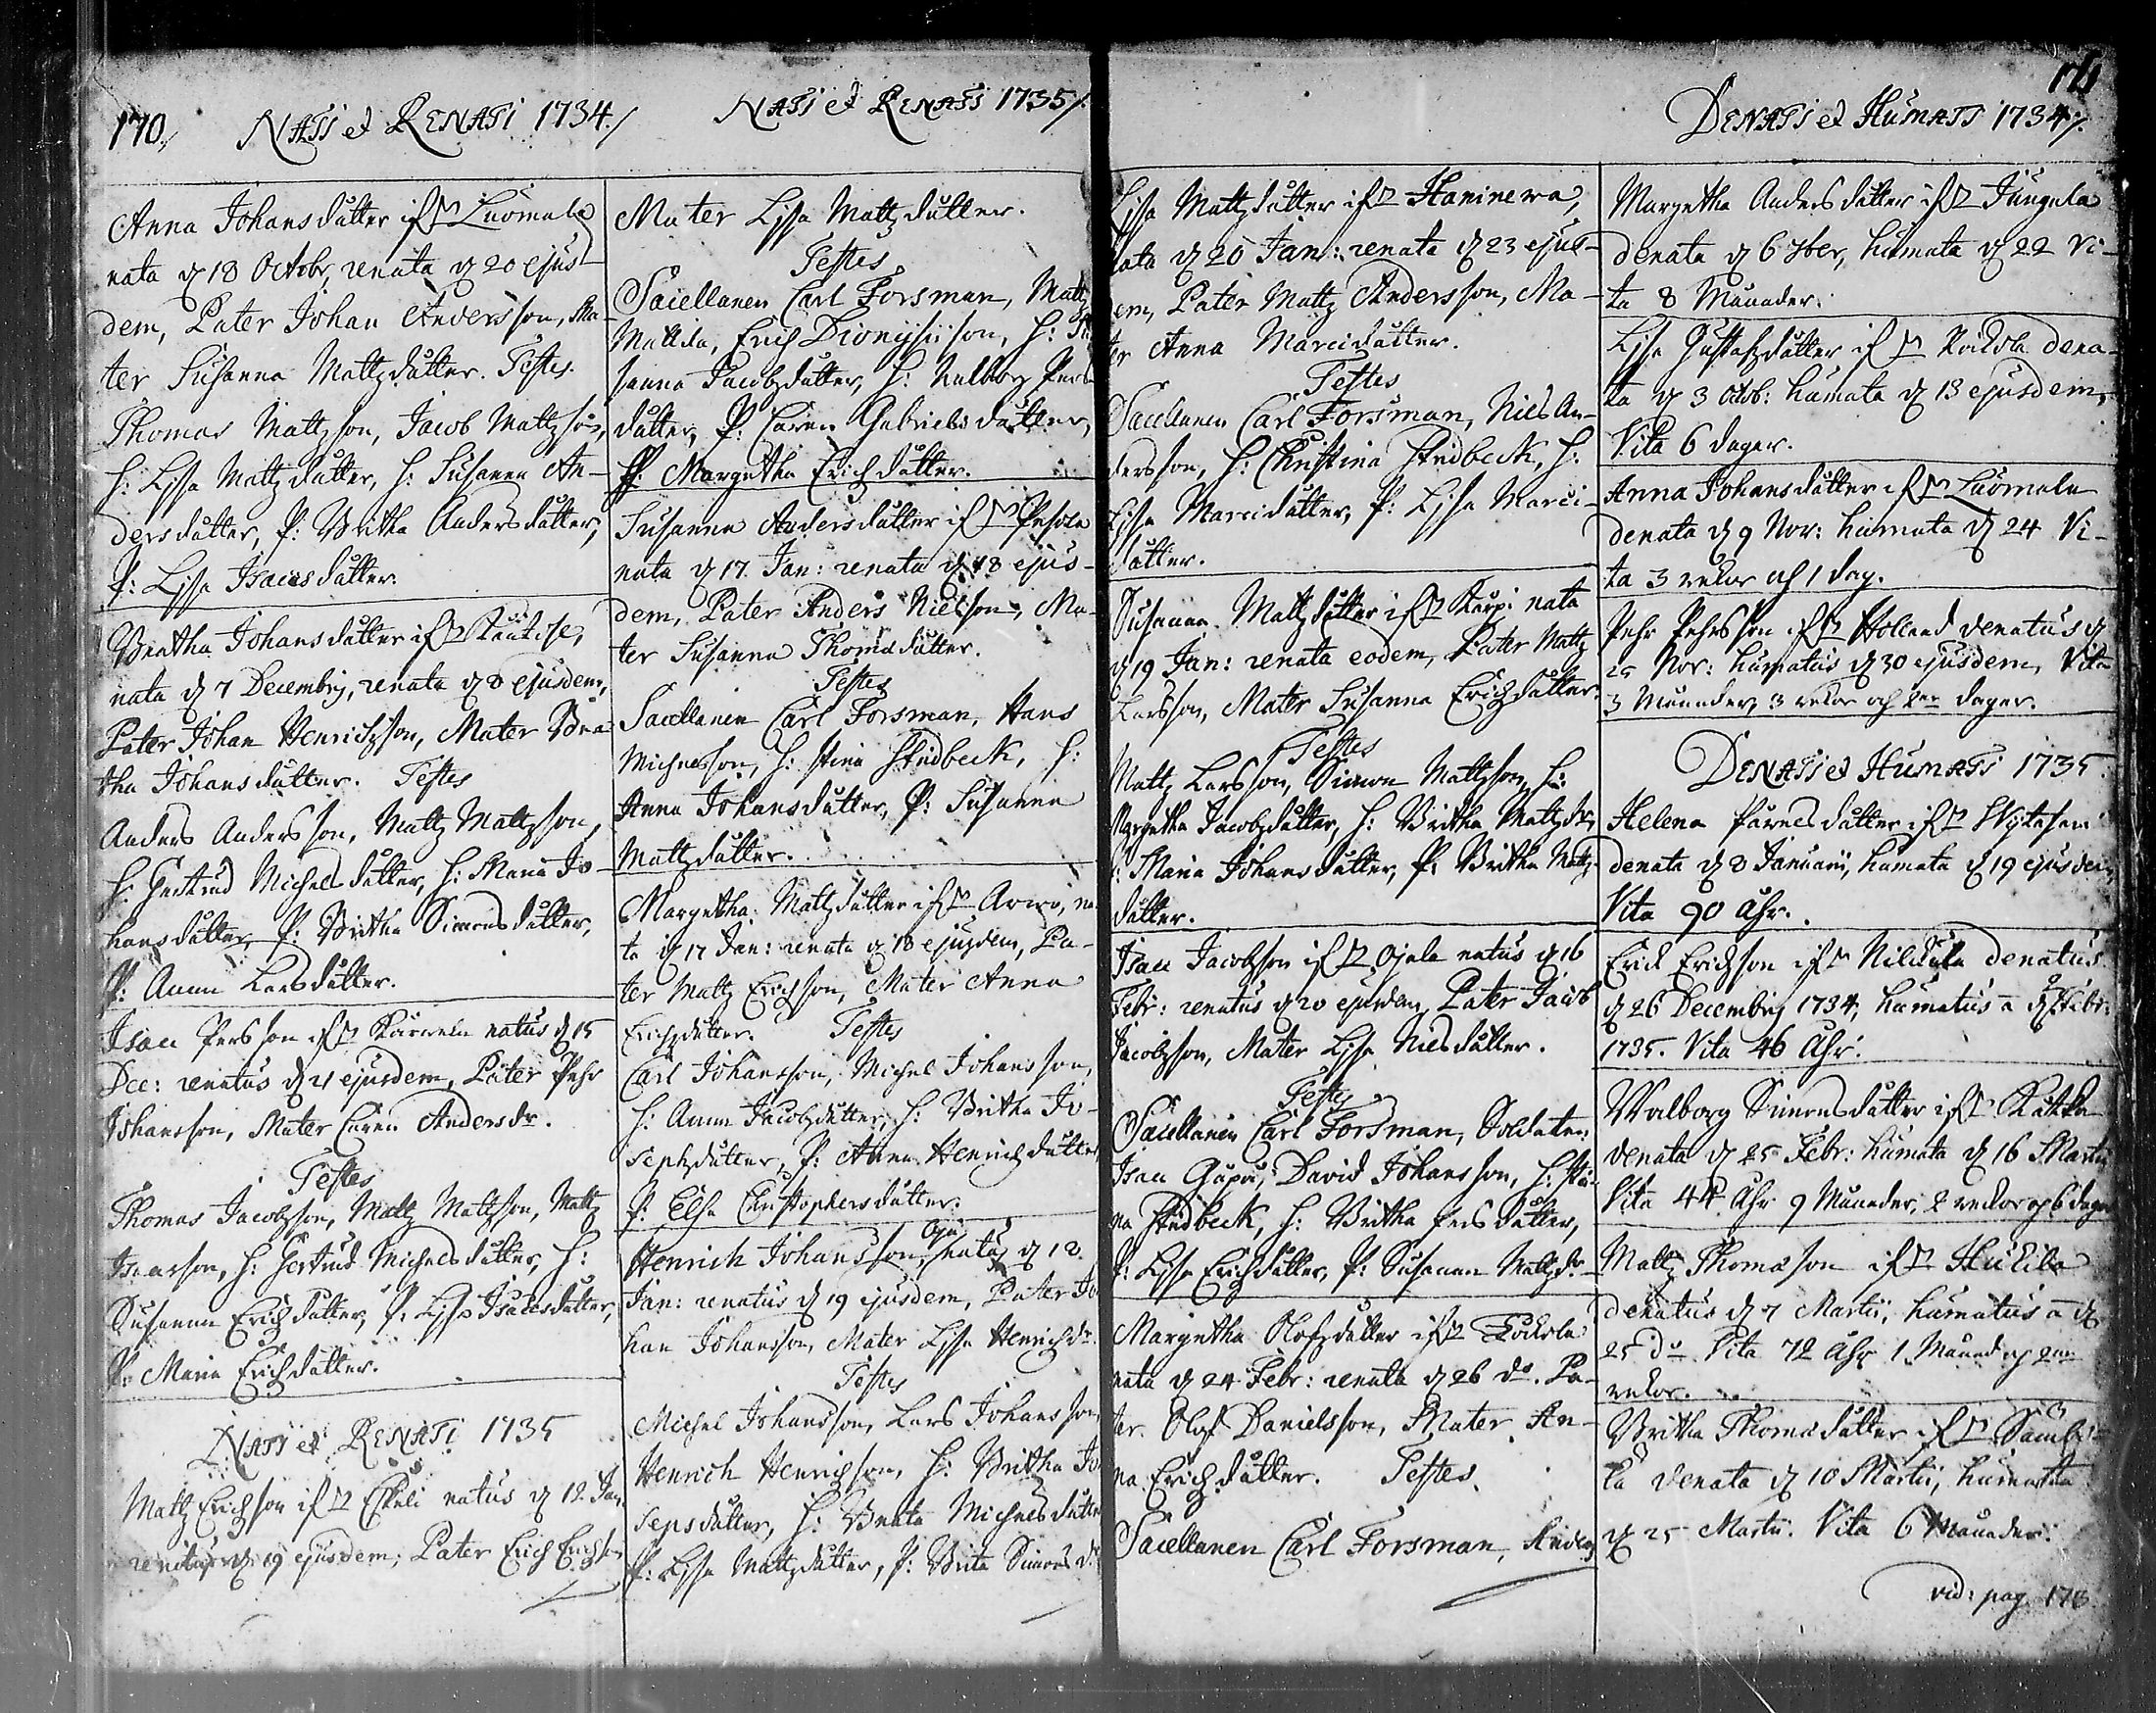 170. NATI et RENATI 1734./
NATI et RENATI 1735/.
Anna Johans dåtter if: Luomala
nata d 18 Octobr, renata d 20 ejus-
dem, Pater Johan Andersson, Ma-
ter Susanna Mattzdåtter. Testes.
Thomas Mattzson, Jacob Mattzson,
H: Lissa Mattzdåtter, H: Susanna An-
dersdåtter, P: Britha Andersdåtter,
P: Lissa Isaacsdåtter.
Breatha Johansdåtter if:
nata d 7 Decembrij, renata d 8 ejusdem,
Pater Johan Henrichson, Mater Brea-
tha Johansdåtter. Testes
Anders Andersson, Mattz Mattzson,
H: Gertrud Michelsdåtter, H: Maria Jo-
hansdåtter, P: Britha Simonsdåtter,
P: Anna Larsdåtter.
Isaac Persson if: natus d 15
Dec: renatus d 21 ejusdem, Pater Pehr
Johansson, Mater Caren Andersdr.
Testes
Thomas Jacobsson, Mattz Mattzson, Mattz
Isacson, H: Gertrud Michelsdåtter, H:
Susanna Erichdåtter, P: Lissa Isaacsdåtter,
P: Maria Erichdåtter.
NATI et RENATI 1735
Mattz Erichson if: Eskeli natus d 12 Jan
renatus d 19 ejusdem, Pater Erich Erichson
Mater Lissa Mattzdåtter.
Testes
Sacellanen Carl Forsman, Mattz
Mattila, Erich Dionysiison, H: Su
sanna Jacobsdåtter, H: Walborg Pers
dåtter, P: Caren Gabrielsdåtter,
P: Margetha Erichdåtter.
Susanna Andersdåtter if: Pesola
nata d 17. Jan: renata d 18 ejus-
dem, Pater Anders Nielson, Ma-
ter Susanna Thomædåtter.
Testes
Sacellanen Carl Forsman, Hans
Michelsson, H: Stina Studbeck, H:
Anna Johansdåtter, P: Susanna
Mattzdåtter.
Margetha Mattzdåtter if: Arvo, na
ta d 17 Jan: renata d 18 ejusdem, Pa-
ter Mattz Erichson, Mater Anna
Erichdåtter. Testes
Carl Johansson, Michel Johansson,
H: Anna Jacobsdåtter, H: Britha Jo-
sephsdåtter, P: Anna Henrichdåtter
P: Elsa Christophersdåtter.
Oja
Henrich Johansson, natus d 18.
Jan: renatus d 19 ejusdem, Pater Jo-
han Johansson, Mater Lissa Henrichdr.
Testes
Michel Johansson, Lars Johansson,
Henrich Henrichson, H: Britha Jo
sepsdåtter, H: Breata Michelsdåtter
P: Lissa Mattzdåtter, P: Brita Simonsdr
171
DENATI et HUMATI 1734/.
Lissa Mattzdåtter if: Haninewa,
nata d 20 Jan: renata d 23 ejus-
dem, Pater Mattz Andersson, Ma-
ter Anna Marcidåtter.
Testes
Sacellanen Carl Forsman, Niels An-
dersson, H: Christina Studbeck, H:
Lissa Marcidåtter, P: Lissa Marci-
dåtter.
Susanna Mattzdåtter if: Karpi nata
d 19 Jan: renata eodem, Pater Mattz
Larsson, Mater Susanna Erichdåtter.
Testes
Mattz Larsson, Simon Mattzson, H:
Margetha Jacobsdåtter, H: Britha Mattzdr,
P: Maria Johansdåtter, P: Britha Mattz-
dåtter.
Isaac Jacobsson if: Ojala natus d 16
Febr: renatus d 20 ejusdem, Pater Jacob
Jacobsson, Mater Lissa Nielsdåtter.
Testes
Sacellanen Carl Forsman, Soldaten
Isaac Gåpå, David Johansson, H: Sti-
na Studbeck, H: Britha Persdåtter,
P: Lissa Erichdåtter, P: Susanna Mattzdr.
Margetha Olofsdåtter if: Tokola
nata d 24 Febr: renata d 26 do. Pa-
ter Olof Danielsson, Mater An-
na Erichdåtter. Testes.
Sacellanen Carl Forsman, Anders
Margetha Andersdåtter if: Jungala
denata d 6 7ber, humata d 22 Vi-
ta 8 Månader.
Lissa Gustafsdåtter if: dena-
ta d 3 Octob: humata d 13 ejusdem,
Vita 6 dagar.
Anna Johansdåtter if: Luomala
denata d 9 Nov: humata d 24 Vi-
ta 3 wekor och 1 dag.
Pehr Pehrsson if: Holland denatus d
25 Nov: humatus d 30 ejusdem, Vita
3 Månader, 3 wekor och 2ne dagar.
DENATI et HUMATI 1735.
Helena if:
denata d 8 Januarii, humata d 19 ejusdem,
Vita 90 Åhr.
Erich Erichson if: denatus
d 26 Decembrij 1734, humatus d Febr:
1735. Vita 46 Åhr.
Walborg Simonsdåtter if:
denata d 25 Febr: humata d 16 Martii
Vita 44 Åhr 9 Månader, 2 wekor och 6 dagar
Mattz Thomæson if: Huhila
denatus d 7 Martii, humatus d
25 do Vita 72 Åhr 1 Månad och 2ne
wekor.
Britha Thomædåtter if:
denata d 10 Martii, humata
d 25 Martii. Vita 6 Månader.
vid: pag. 178